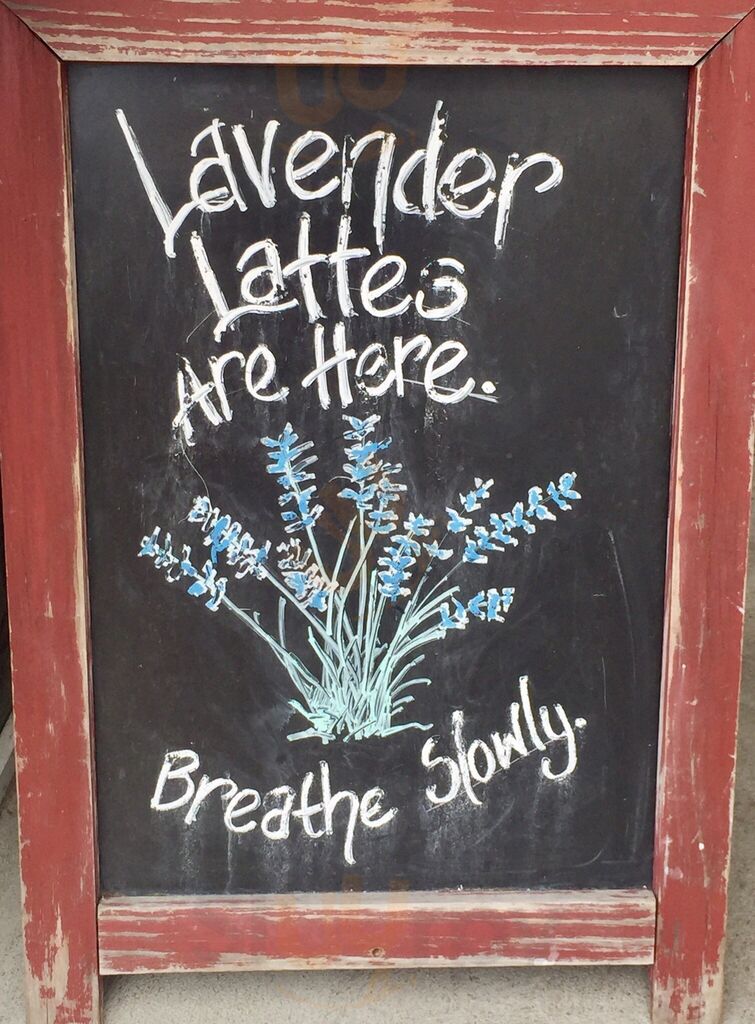 Lavender
Lattes
Are Here.
Breathe Slowly.